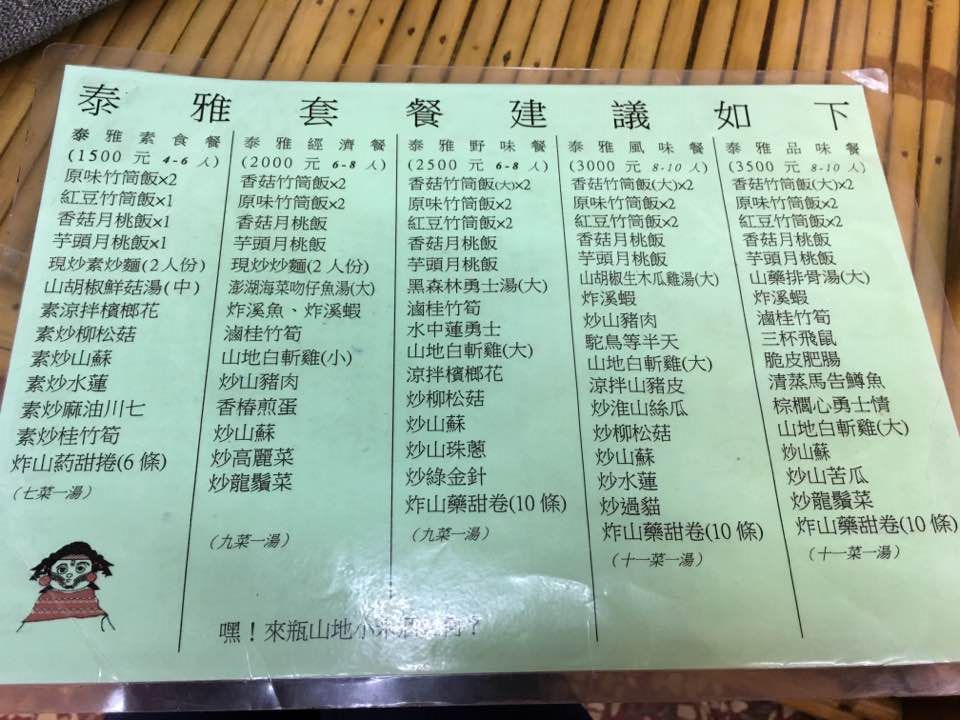 泰雅套餐建議如下
泰雅素食餐
(1500 元 4-6 人)
原味竹筒飯×2
紅豆竹筒飯×1
香菇月桃飯×1
芋頭月桃飯×1
現炒素炒麵(2人份)
山胡椒鮮菇湯(中)
素涼拌檳榔花
素炒柳松菇
素炒山蘇
素炒水蓮
素炒麻油川七
素炒桂竹筍
炸山药甜捲(6條)
(七菜一湯)
泰雅經濟餐
(2000 元 6-8 人)
香菇竹筒飯×2
原味竹筒飯×2
香菇月桃飯
芋頭月桃飯
現炒炒麵(2人份)
澎湖海菜吻仔魚湯(大)
炸溪魚、炸溪蝦
滷桂竹筍
山地白斬雞(小)
炒山豬肉
香椿煎蛋
炒山蘇
炒高麗菜
炒龍鬚菜
(九菜一湯)
泰雅野味餐
(2500 元 6-8 人)
香菇竹筒飯(大)×2
原味竹筒飯×2
紅豆竹筒飯×2
香菇月桃飯
芋頭月桃飯
黑森林勇士湯(大)
滷桂竹筍
水中蓮勇士
山地白斬雞(大)
涼拌檳榔花
炒柳松菇
炒山蘇
炒山珠蔥
炒綠金針
炸山藥甜卷(10條)
(九菜一湯)
泰雅風味餐
(3000 元 8-10 人)
香菇竹筒飯(大)×2
原味竹筒飯×2
紅豆竹筒飯×2
香菇月桃飯
芋頭月桃飯
山胡椒生木瓜雞湯(大)
炸溪蝦
炒山豬肉
鴕鳥等半天
山地白斬雞(大)
涼拌山豬皮
炒淮山絲瓜
炒柳松菇
炒山蘇
炒水蓮
炒過貓
炸山藥甜卷(10條)
(十一菜一湯)
泰雅品味餐
(3500 元 8-10 人)
香菇竹筒飯(大)×2
原味竹筒飯×2
紅豆竹筒飯×2
香菇月桃飯
芋頭月桃飯
山藥排骨湯(大)
炸溪蝦
滷桂竹筍
三杯飛鼠
脆皮肥腸
清蒸馬告鱒魚
棕櫚心勇士情
山地白斬雞(大)
炒山蘇
炒山苦瓜
炒龍鬚菜
炸山藥甜卷(10條)
(十一菜一湯)
嘿!來瓶山地小米酒?